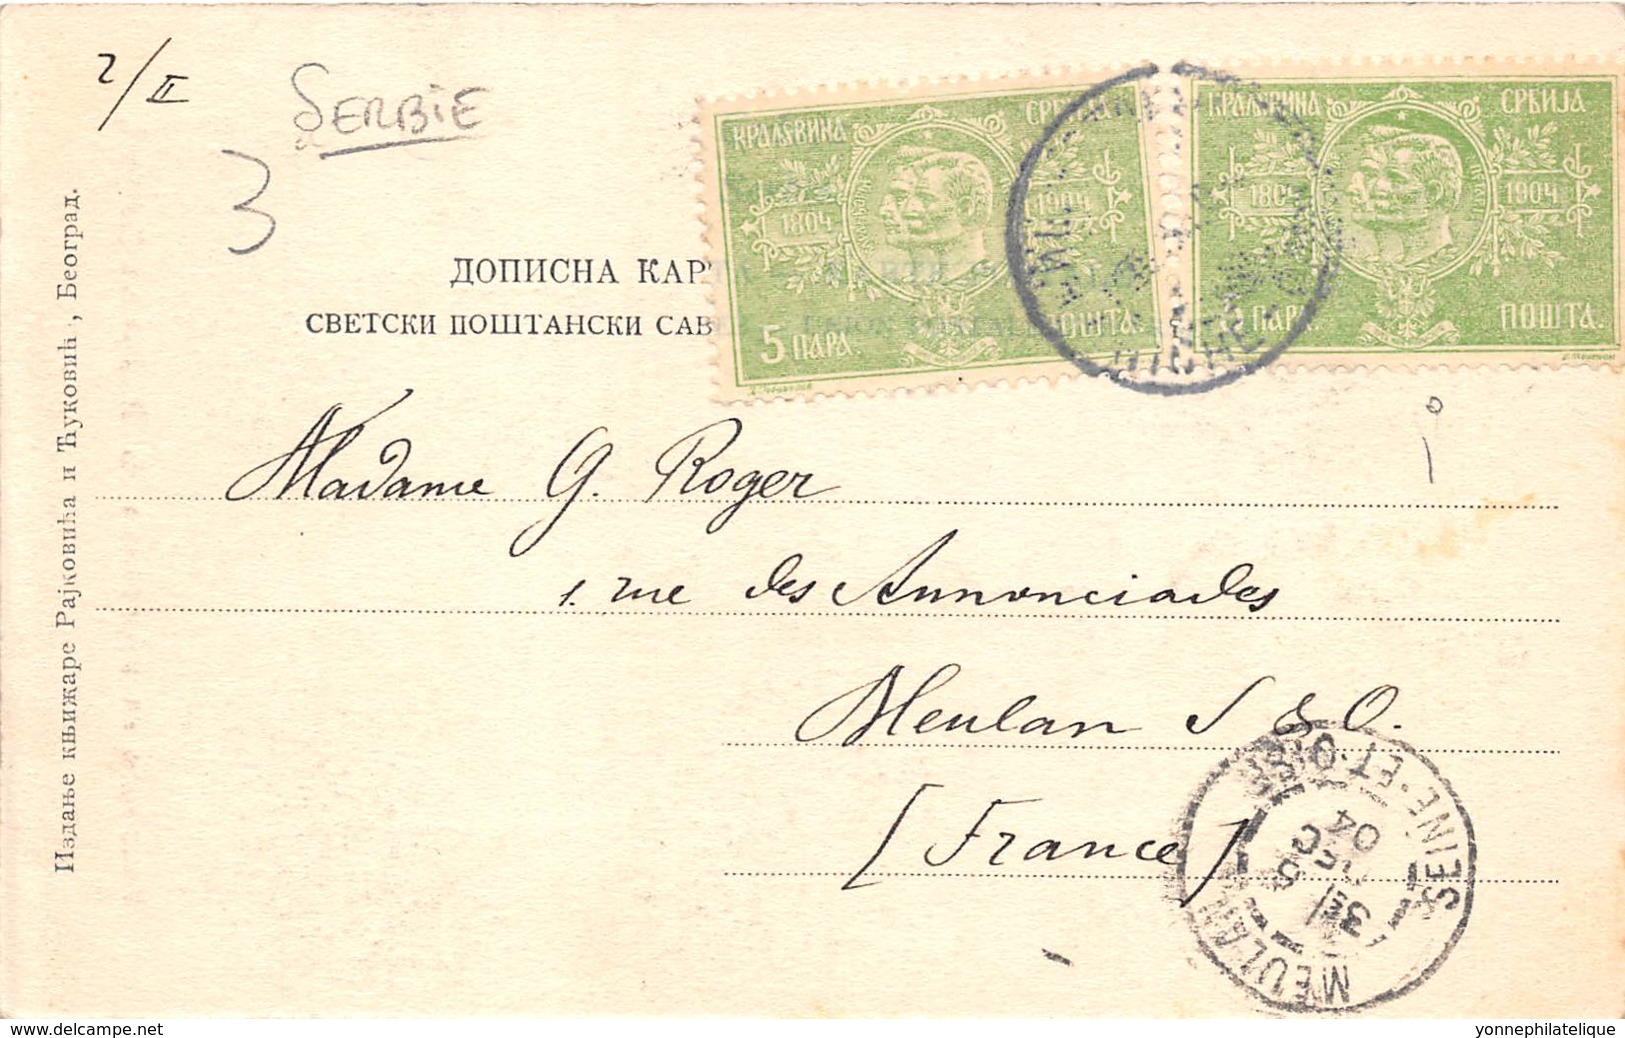 2/II
SERBIE
3
КРАЉЕВИНА СРБИЈА
1804 1904
5 ПАРА. ПОШТА.
КРАЉЕВИНА СРБИЈА
1804 1904
ПАРА. ПОШТА.
ДОПИСНА КАРТ
СВЕТСКИ ПОШТАНСКИ САВ
Издање књижаре Рајковића и Ћуковић, Београд.
Madame G. Roger
1. rue des Annonciades
Meulan S & O.
[France]
MEULAN SEINE-ET-OISE
3E
5
DEC
04
delcampe.net
yonnephilatelique